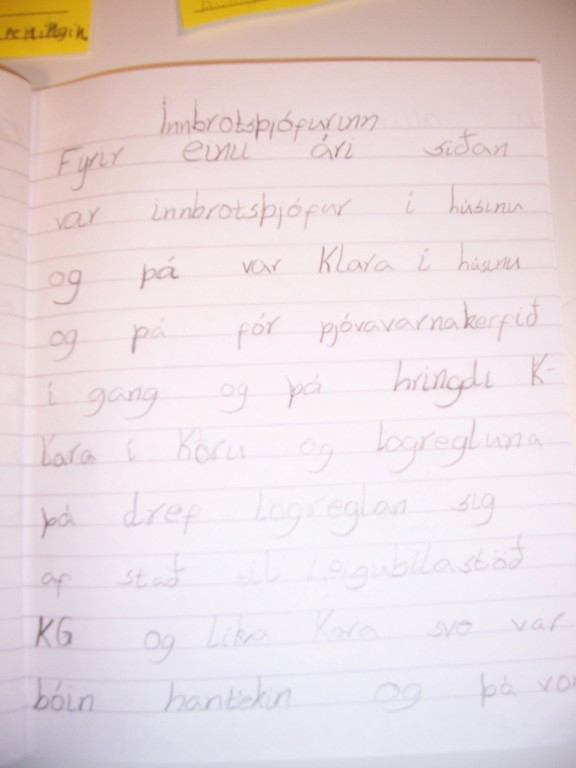 peningin.
Innbrotsþjófurinn
Fyrir einu ári siðan
var innbrotsþjófur í húsinu
og þá var Klara í húsinu
og þá fór þjóvavarnakerfið
í gang og þá hringdi K-
lara í Köru og logregluna
þá dref logreglan sig
af stað til Leigubílastöð
KG og líka Kara svo var
bóin hantekin og þá vor